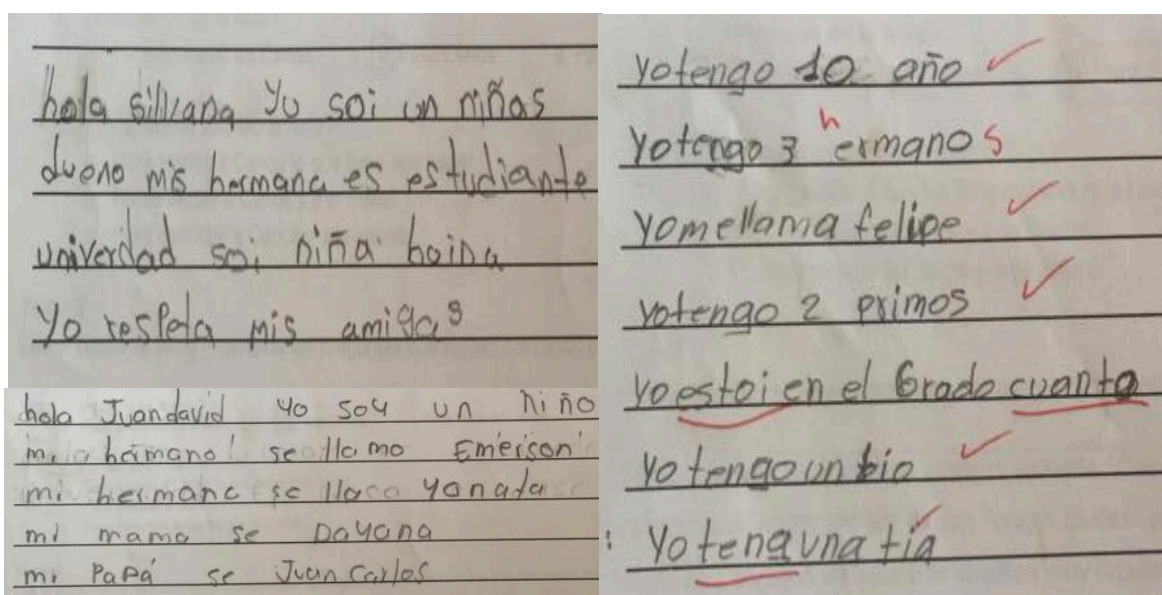 hola silvana Yo soi un niñas
dueno mis hermana es estudiante
univerdad soi niña boina
Yo respeta mis amigas
hola Juandavid yo soy un niño
mi hermano se llamo Emerson
mi hermano se llaco yonata
mi mama se Dayana
mi PaPá se Juan Carlos
yotengo 10 año
yotengo 3 hermanos
yomellama felipe
yotengo 2 primos
yo estoi en el Grado cuanto
yo tengo un bio
yo tena una tía